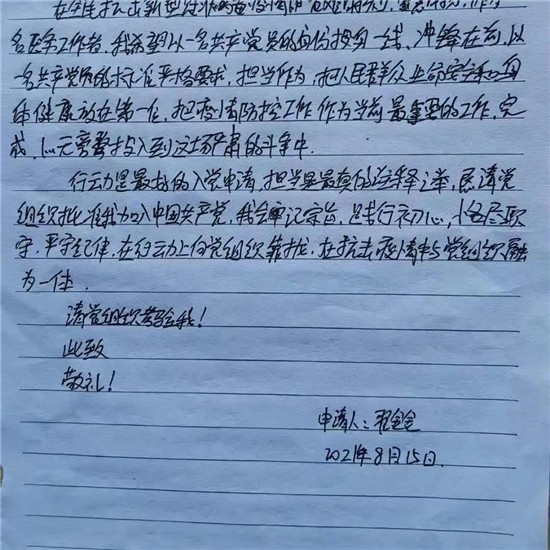 在全国抗击新型冠状病毒
名医务工作者,我希望以一名共产党员的身份投身一线,冲锋在前,以
一名共产党员的标准严格要求,担当作为,把人民群众生命安全和身
体健康放在第一位,把疫情防控工作作为当前最重要的工作,完
成,心无旁骛投入到这场严肃的斗争中.
行动是最好的入党申请,担当是最真的诠释之举,恳请党
组织批准我加入中国共产党,我会牢记宗旨,践行初心,恪尽职
守,严守纪律,在行动上向党组织靠拢,在抗击疫情中与党组织融
为一体.
请党组织考验我!
此致
敬礼!
申请人:
2021年8月15日.